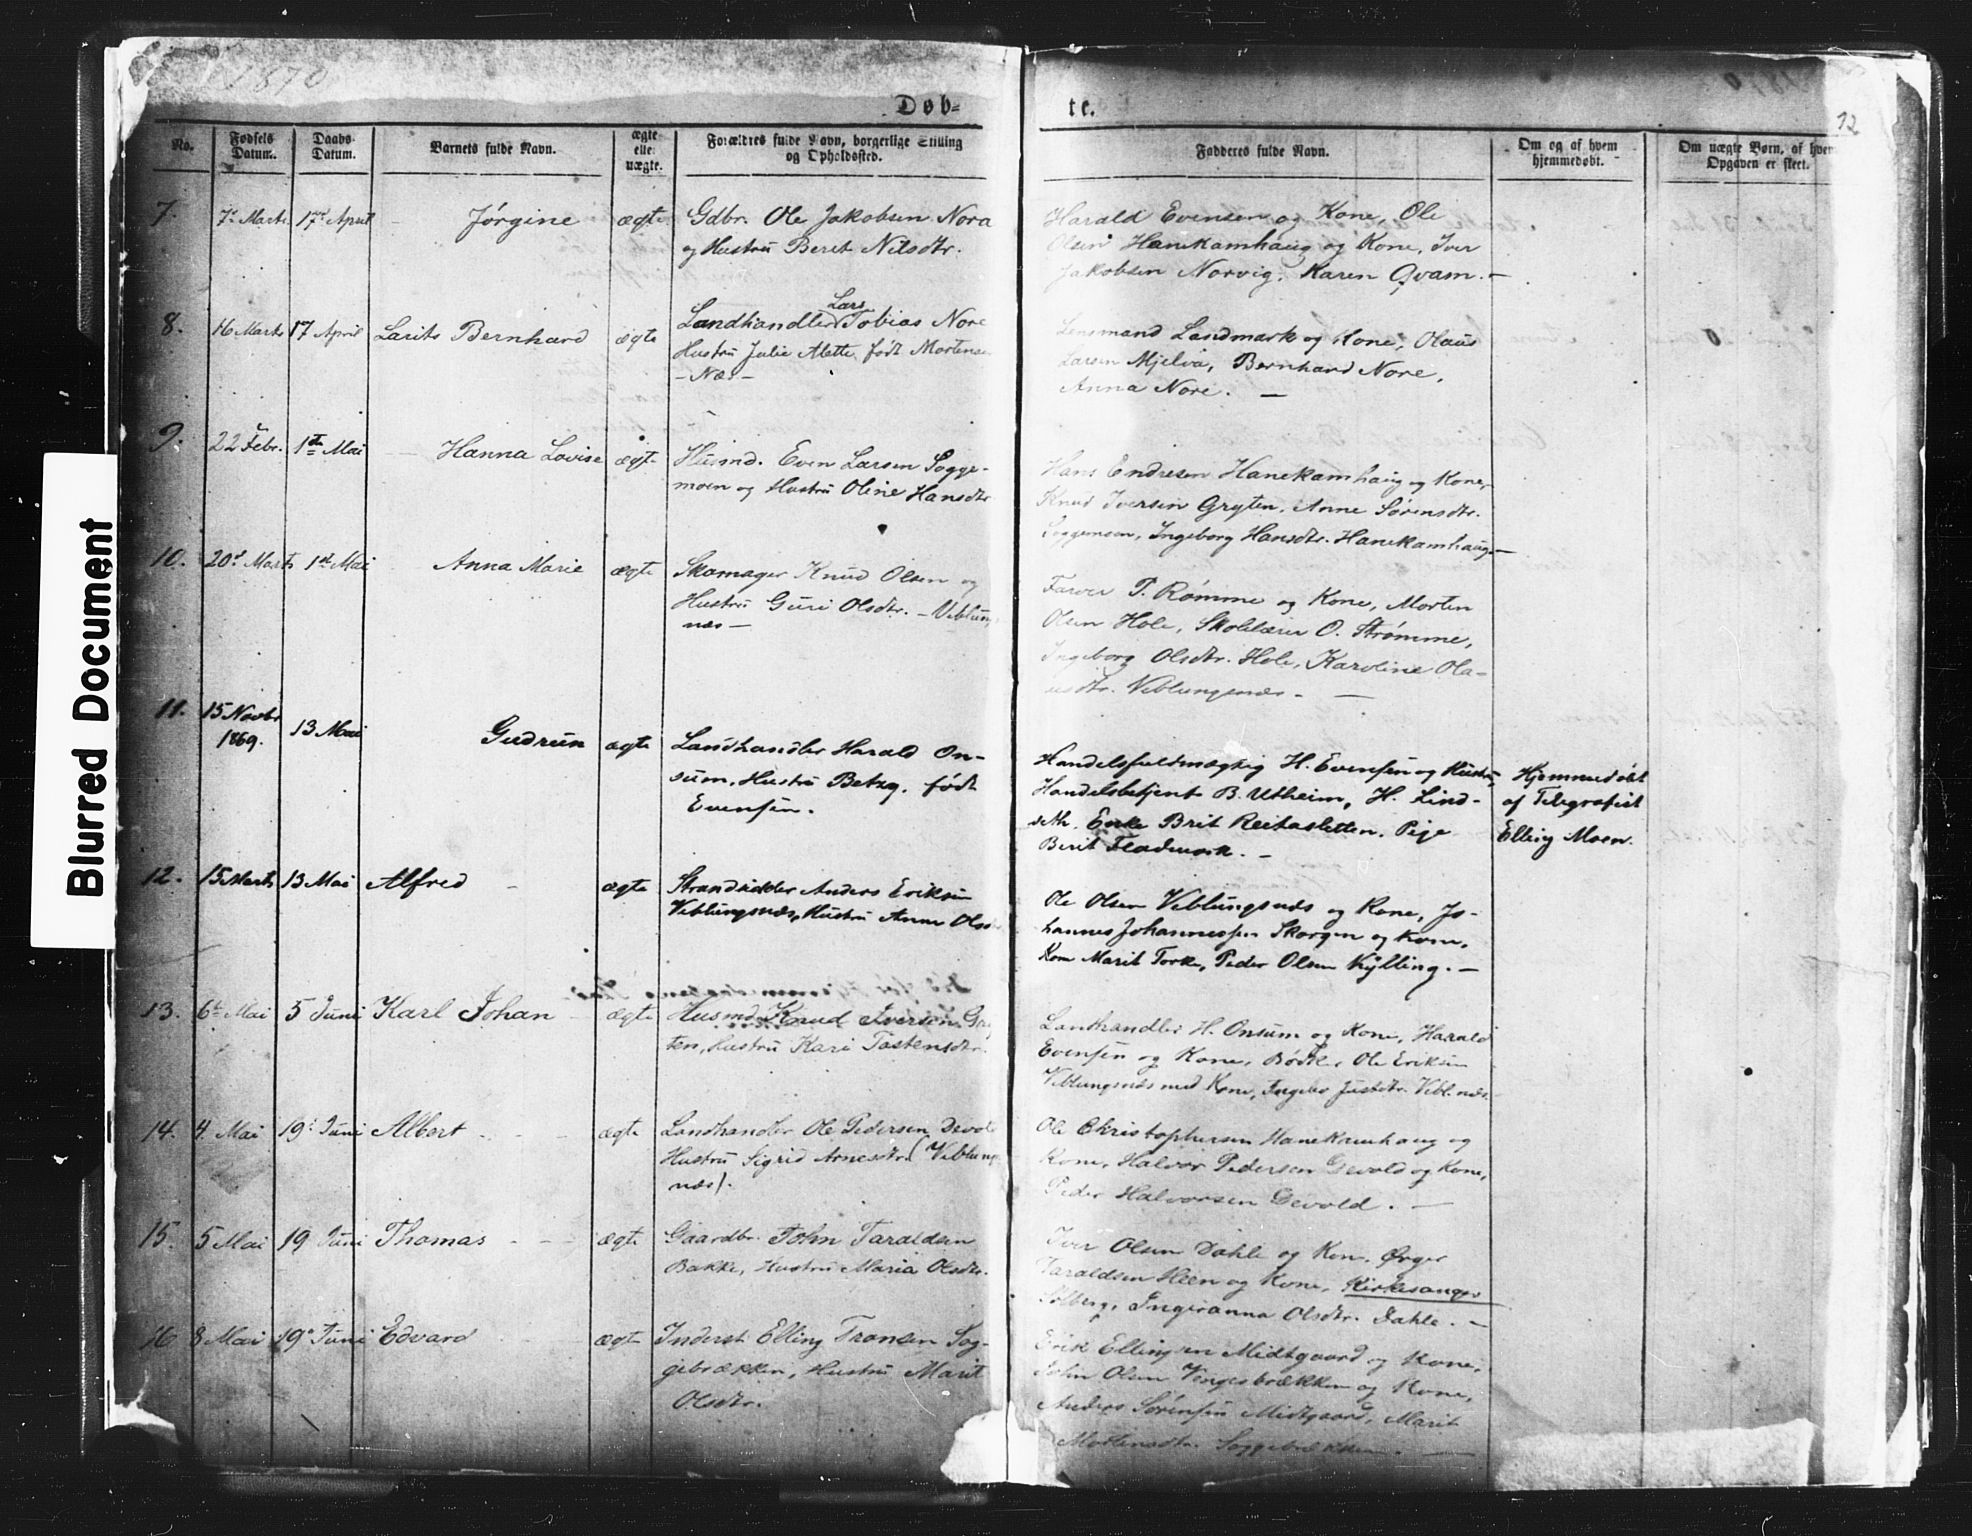 1870
Døb-
te.
12
No.
Fødsels Datum.
Daabs-Datum.
Barnets fulde Navn.
ægte eller uægte.
Forældres fulde Navn, borgerlige Stilling og Opholdssted.
Fadderes fulde Navn.
Om og af hvem hjemmedøbt.
Om uægte Børn, af hvem Opgaven er skeet.
Blurred Document
7. 7de Marts 17de April Jørgine ægte
Gdbr. Ole Jakobsen Nora
og Hustru Beret Nilsdtr.
Harald Evensen og Kone, Ole
Olsen Hanekamhaug og Kone, Iver
Jakobsen Norvig, Karen Qvam. -
8. 16 Marts 17 April Laurits Bernhard ægte
Lars
Landhandler Tobias Nore
Hustru Julie Alette, født Mortensen
- Næs -
Lensmand Landmark og Kone, Olaus
Larsen Mjelva, Bernhard Nore,
Anna Nore. -
9. 22 Febr. 1ste Mai Hanna Lovise ægte
Husmd. Even Larsen Sogge-
moen og Hustru Oline Hansdtr
Hans Endresen Hanekamhaug og Kone,
Knud Iversen Gryten, Anne Sørensdtr.
Soggemoen, Ingeborg Hansdtr. Hanekamhaug -
10. 20de Marts 1ste Mai Anna Marie ægte
Skomager Knud Olsen og
Hustru Guri Olsdtr. - Veblungs
næs -
Farver P. Rømme og Kone, Morten
Olsen Hole, Skolelærer O. Strømme,
Ingeborg Olsdtr. Hole, Karoline Ola-
usdtr. Veblungsnæs. -
11. 15 Novbr 1869. 13 Mai Gudrun ægte
Landhandler Harald On-
sum, Hustru Betzy, født
Evensen.
Handelsfuldmægtig H. Evensen og Hustru,
Handelsbetjent B. Utheim, H. Lind-
seth, Enke Brit Reitasletten, Pige
Berit Fladmark. -
Hjemmedøbt
af Telegrafist
Elling Moen.
12. 15 Marts 13 Mai Alfred - ægte
Strandsidder Anders Eriksen
Veblungsnæs, Hustru Anne Olsd
Ole Olsen Veblungsnæs og Kone, Jo-
hannes Johannessen Skorgen og Kone,
Kone Marit Torke, Peder Olsen Kylling. -
13. 6te Mai 5 Juni Karl Johan - ægte
Husmd Knud Iversen Gry
ten, Hustru Kari Tostensdtr.
Landhandler H. Onsum og Kone, Harald
Evensen og Kone, Bødker Ole Eriksen
Veblungsnæs med Kone, Ingebor Justdtr. Vebl.næs.
14. 4 Mai 19de Juni Albert - - - ægte
Landhandler Ole Pedersen Devold
Hustru Sigrid Arnesdtr (Veblungs
næs).
Ole Christophersen Hanekamhaug og
Kone, Halvor Pedersen Devold og Kone,
Peder Halvorsen Devold. -
15. 5 Mai 19 Juni Thomas - - - ægte
Gaardbr. John Taraldsen
Bakke, Hustru Maria Olsdtr.
Iver Olsen Dahle og Kone, Ørger
Taraldsen Heen og Kone, Kirkesanger
Solberg, Ingeranna Olsdtr. Dahle. -
16 8 Mai 19de Juni Edvard - - ægte
Inderst Elling Tronsen Sog-
gebrækken, Hustru Marit
Olsdtr.
Erik Ellingsen Midtgaard og Kone,
John Olsen Vengesbrækken og Kone,
Anders Sørensen Midtgaard, Marit
Mortensdtr. Soggebrækken. -